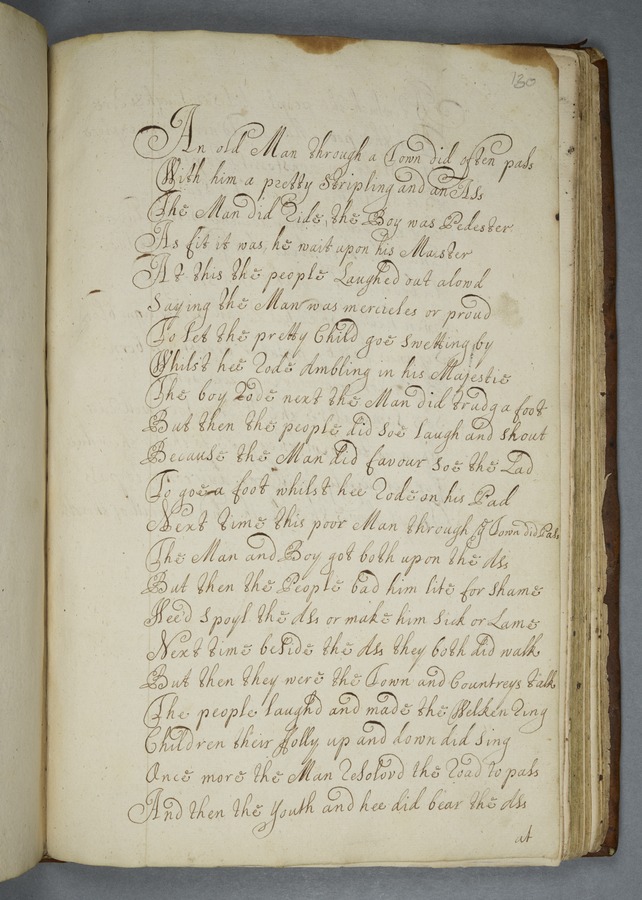 130
An old Man through a Town did often pass
With him a pretty Stripling and an Ass
The Man did Ride, the Boy was Pedester
As fit it was, he wait upon his Master
At this the people Laughed out alowd
Saying the Man was mercieles or proud
To let the pretty Child goe swetting by
Whilst hee Rode Ambling in his Majestie
The boy Rode next the Man did trudg a foot
But then the people did soe laugh and shout
Because the Man did favour soe the Lad
To goe a foot whilst hee Rode on his Pad
Next time this poor Man through ye Town did Pass
The Man and Boy got both upon the Ass
But then the People bad him lite for shame
Heed spoyl the Ass or make him sick or Lame
Next time beside the Ass they both did walk
But then they were the Town and Countreys talk
The people laughd and made the Welken Ring
Children their ffolly up and down did sing
Once more the Man Resolovd the Road to pass
And then the youth and hee did bear the Ass
at